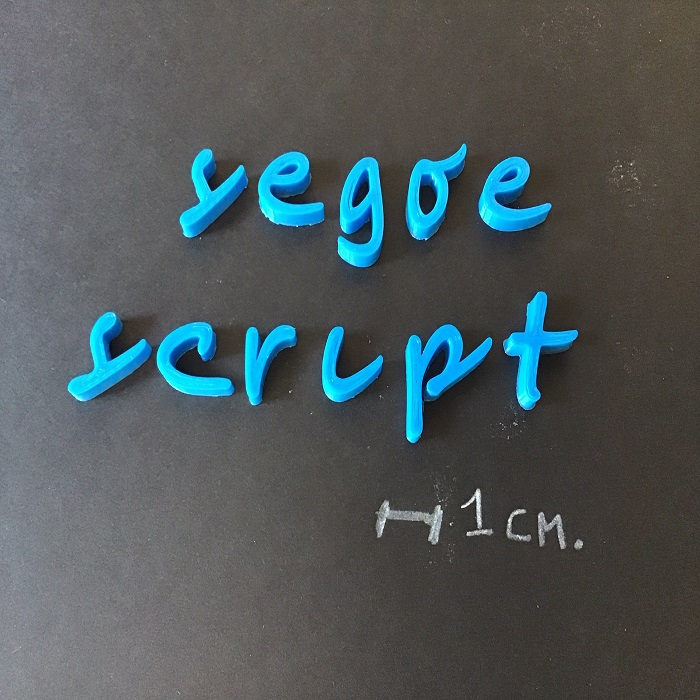 segoe
script
1 см.